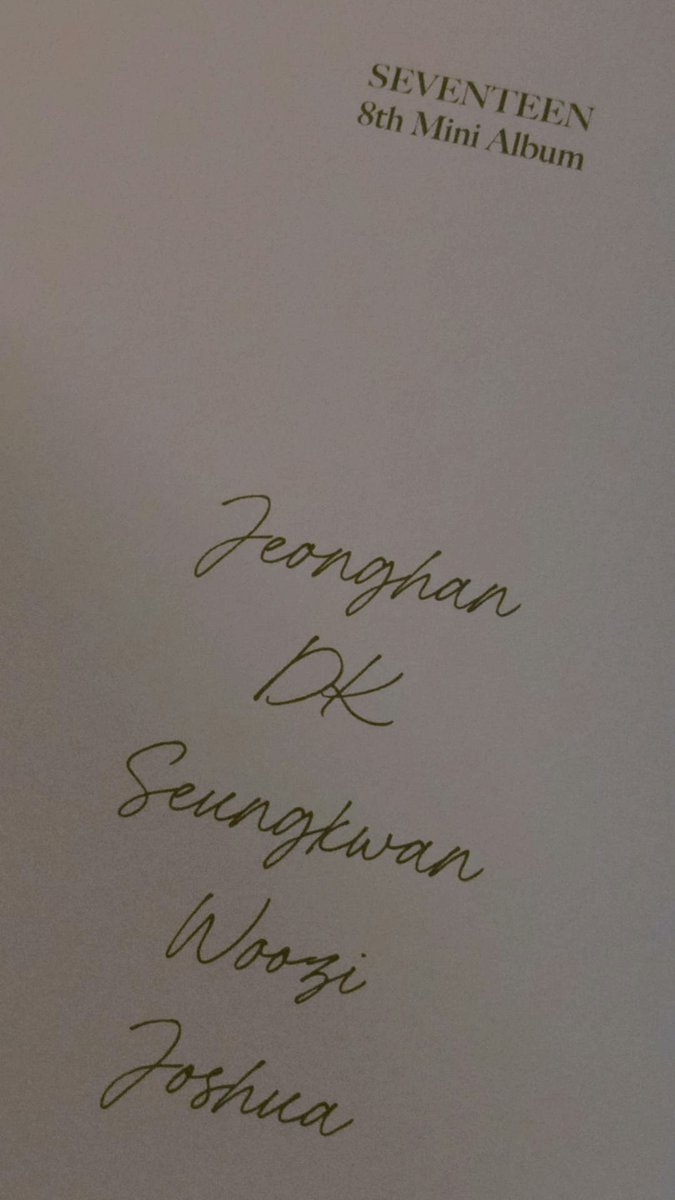 SEVENTEEN
8th Mini Album
Jeonghan
DK
Seungkwan
Woozi
Joshua